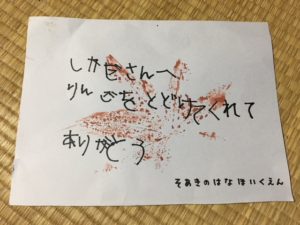 しかまさんへ
りんごをとどけてくれて
ありがとう
そあきのはなほいくえん